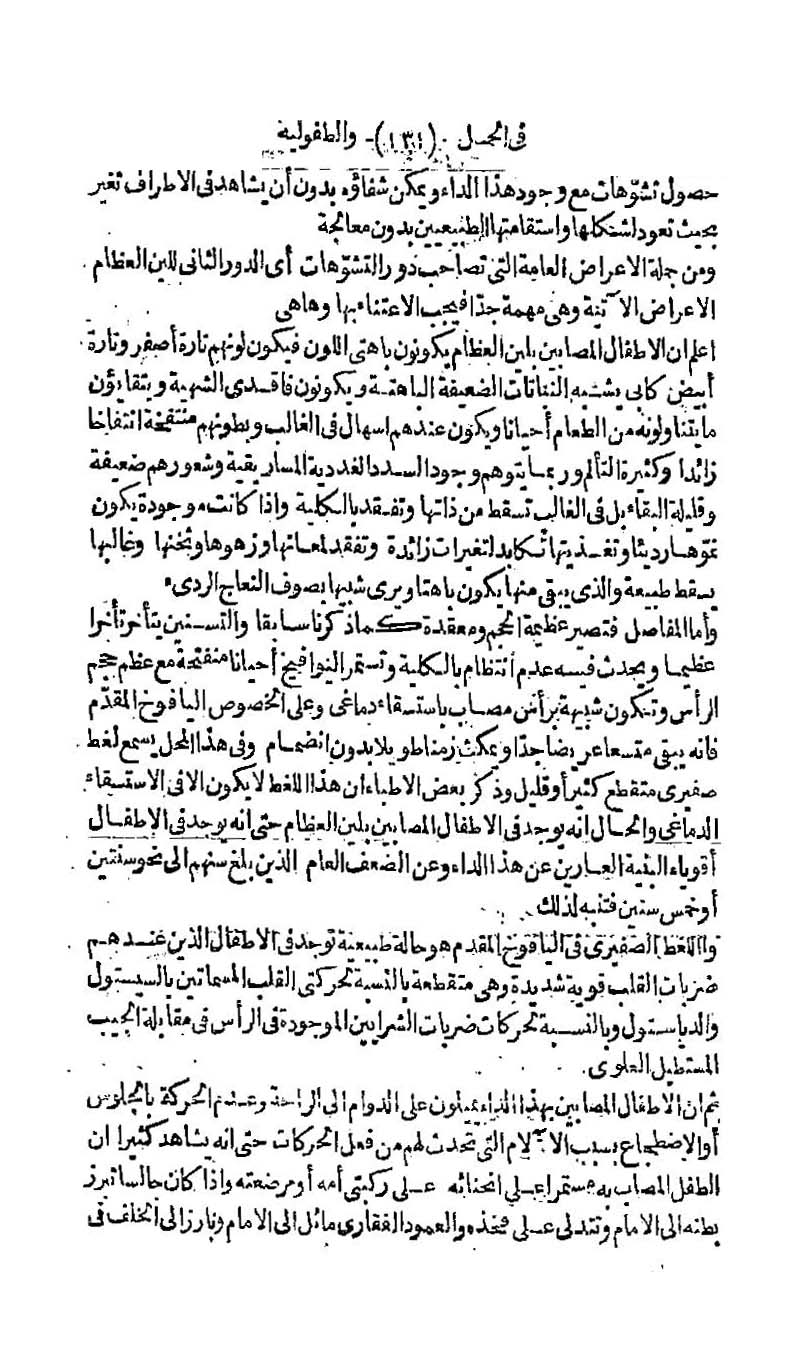 فى الحمل (١٣١) والطفولية
حصول تشوّهات مع وجود هذا الداء ويمكن شفاؤه بدون أن يشاهد فى الاطراف تغير
بحيث تعود اشكالها واستقامتها الطبيعيين بدون معالجة
ومن جملة الاعراض العامة التى تصاحب دور التشوّهات أى الدور الثانى للين العظام
الاعراض الآتية وهى مهمة جدّا فيجب الاعتناء بها وهاهى
اعلم ان الاطفال المصابين بلين العظام يكونون باهتى اللون فيكون لونهم تارة أصفر وتارة
أبيض كابى يشبه النباتات الضعيفة الباهتة ويكونون فاقدى الشهية ويتقايؤن
ما يتناولونه من الطعام أحيانا ويكون عندهم اسهال فى الغالب وبطونهم منتفخة انتفاخا
زائدا وكثيرة التألم وربما يتوهم وجود السدد الغددية المساريقية وشعورهم ضعيفة
وقليلة البقاء بل فى الغالب تسقط من ذاتها وتفقد بالكلية واذا كانت موجودة يكون
نموّها رديئا وتغذيتها تكابد تغيرات زائدة وتفقد لمعانها وزهوها وثخنها وغالبها
يسقط طبيعة والذى يبقى منها يكون باهتا ويرى شبيها بصوف النعاج الردىء
وأما المفاصل فتصير عظيمة الحجم ومعقدة كماذكرنا سابقا والتسنين يتأخر تأخرا
عظيما ويحدث فيه عدم انتظام بالكلية وتستمر النوافيخ أحيانا منفتحة مع عظم حجم
الرأس وتكون شبيهة برأس مصاب باستسقاء دماغى وعلى الخصوص اليافوخ المقدّم
فانه يبقى متسعا عريضا جدّا ويمكث زمنا طويلا بدون انضمام وفى هذا المحل يسمع لغط
صفيرى متقطع كثير أو قليل وذكر بعض الاطباء ان هذا اللغط لا يكون الا فى الاستسقاء
الدماغى والحال انه يوجد فى الاطفال المصابين بلين العظام حتى انه يوجد فى الاطفال
أقوياء البنية العارين عن هذا الداء وعن الضعف العام الذين بلغ سنهم الى نحو سنتين
أو خمس سنين فتنبه لذلك
واللغط الصفيرى فى اليافوخ المقدم هو حالة طبيعية توجد فى الاطفال الذين عندهم
ضربات القلب قوية شديدة وهى متقطعة بالنسبة لحركتى القلب المسماتين بالسيستول
والدياستول وبالنسبة لحركات ضربات الشرايين الموجودة فى الرأس فى مقابلة الجيب
المستطيل العلوى
ثم ان الاطفال المصابين بهذا الداء يميلون على الدوام الى الراحة وعدم الحركة بالجلوس
أو الاضطجاع بسبب الآلام التى تحدث لهم من فعل الحركات حتى انه يشاهد كثيرا ان
الطفل المصاب به مستمر اعلى انحنائه على ركبتى أمه أو مرضعته واذا كان جالسا تبرز
بطنه الى الامام وتتدلى على فخذه والعمود الفقارى مائل الى الامام وبارز الى الخلف فى